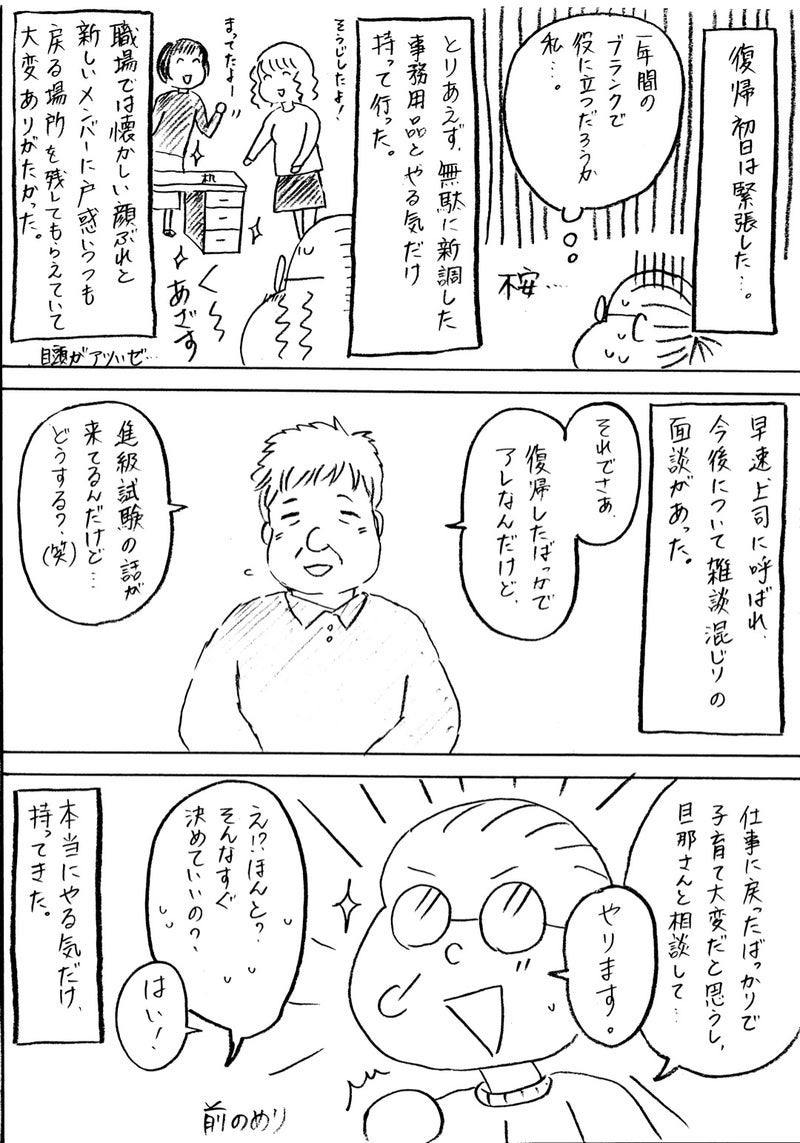 復帰初日は緊張した…。
1年間の
ブランクで
役に立つだろうか
私…。
不安…
とりあえず、無駄に新調した
事務用品とやる気だけ
持って行った。
そうじしたよ!
まってたよー
机
く〜
あざす
職場では懐かしい顔ぶれと
新しいメンバーに戸惑いつつも
戻る場所を残してもらえていて
大変ありがたかった。
目頭がアツいぜ…
早速上司に呼ばれ、
今後について雑談混じりの
面談があった。
それでさぁ、
復帰したばっかで
アレなんだけど、
進級試験の話が
来てるんだけど…
どうする?(笑)
仕事に戻ったばっかりで
子育て大変だと思うし、
旦那さんと相談して…
やります。
え!?ほんと?
そんなすぐ
決めていいの?
はい!
前のめり
本当にやる気だけ、
持ってきた。